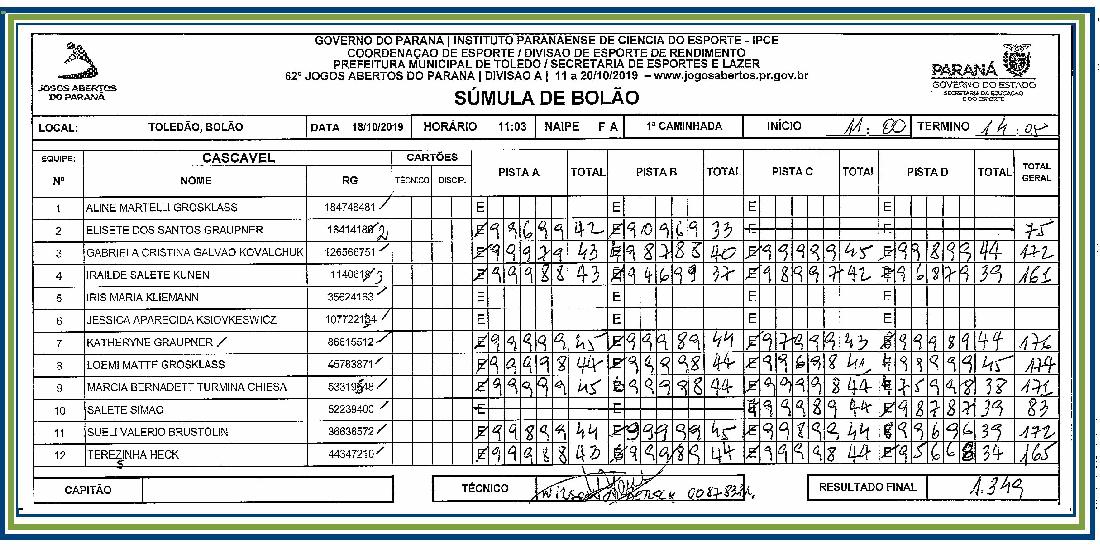 GOVERNO DO PARANA | INSTITUTO PARANAENSE DE CIENCIA DO ESPORTE - IPCE
COORDENAÇAO DE ESPORTE / DIVISAO DE ESPORTE DE RENDIMENTO
PREFEITURA MUNICIPAL DE TOLEDO / SECRETARIA DE ESPORTES E LAZER
62º JOGOS ABERTOS DO PARANA | DIVISAO A | 11 a 20/10/2019 – www.jogosabertos.pr.gov.br
JOGOS ABERTOS
DO PARANÁ
PARANÁ
GOVERNO DO ESTADO
SECRETARIA DA EDUCAÇÃO
E DO ESPORTE
SÚMULA DE BOLÃO
LOCAL: TOLEDÃO, BOLÃO DATA 18/10/2019 HORÁRIO 11:03 NAIPE F A 1ª CAMINHADA INÍCIO 11:00 TERMINO 14:05
EQUIPE: CASCAVEL CARTÕES PISTA A TOTAL PISTA B TOTAL PISTA C TOTAL PISTA D TOTAL TOTAL GERAL
Nº NOME RG TÉCNICO DISCIP.
1 ALINE MARTELLI GROSKLASS 184748481 E E E E
2 ELISETE DOS SANTOS GRAUPNER E 9 9 6 9 9 42 E 9 0 9 6 9 33 E E 75
3 GABRIELA CRISTINA GALVAO KOVALCHUK 126566751 E 9 9 9 7 9 43 E 9 8 7 8 8 40 E 9 9 9 9 9 45 E 9 9 8 9 9 44 172
4 IRAILDE SALETE KUNEN E 9 9 9 8 8 43 E 9 4 6 9 9 37 E 9 8 9 9 7 42 E 9 6 8 7 9 39 161
5 IRIS MARIA KLIEMANN 35624163 E E E E
6 JESSICA APARECIDA KSIOVKESWICZ E E E E
7 KATHERYNE GRAUPNER 86615512 E 9 9 9 9 9 45 E 9 9 9 8 9 44 E 9 7 9 9 9 43 9 9 9 8 9 44 176
8 LOEMI MATTE GROSKLASS 45783871 E 9 9 9 9 8 44 E 9 9 9 9 8 44 E 9 9 6 9 8 41 9 9 9 9 9 45 174
9 MARCIA BERNADETT TURMINA CHIESA E 9 9 9 9 9 45 9 9 9 9 8 44 9 9 9 9 8 44 E 7 5 9 9 8 38 171
10 SALETE SIMAO 52239400 E E E 9 9 9 8 9 44 E 9 8 7 8 7 39 83
11 SUELI VALERIO BRUSTOLIN 36636572 E 9 9 8 9 9 44 E 9 9 9 9 9 45 E 9 9 8 9 9 44 9 9 6 9 6 39 172
12 TEREZINHA HECK 44347210 E 9 9 9 8 8 43 E 9 9 9 8 9 44 E 9 9 9 9 8 44 E 9 5 6 6 8 34 165
CAPITÃO TÉCNICO RESULTADO FINAL 1.349